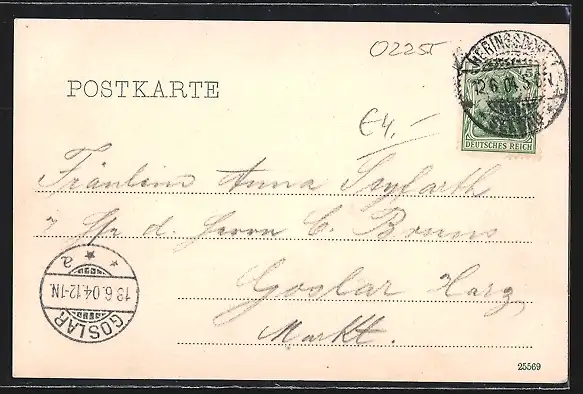 02255
HERINGSDORF
12 6 04
5
DEUTSCHES REICH
POSTKARTE
€4,-
Fräulein Anna
d. Herrn C. Bruns
Goslar Harz
Markt.
GOSLAR
13.6.04.12-1N.
* a *
25569